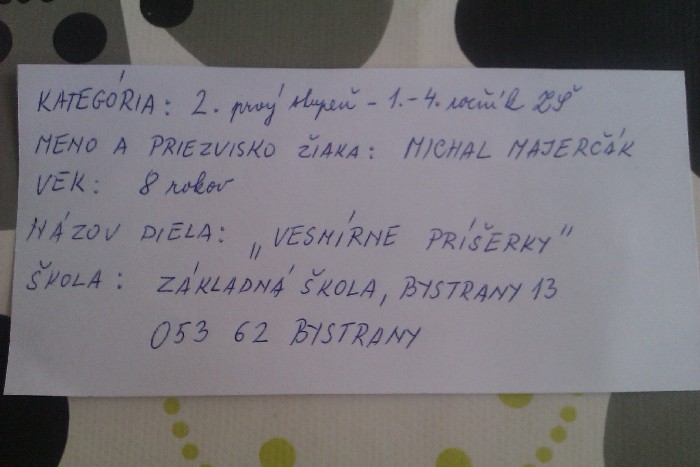 KATEGÓRIA: 2. prvý stupeň - 1.-4. ročník ZŠ
MENO A PRIEZVISKO ŽIAKA: MICHAL MAJERČÁK
VEK: 8 rokov
NÁZOV DIELA: „VESMÍRNE PRÍŠERKY"
ŠKOLA: ZÁKLADNÁ ŠKOLA, BYSTRANY 13
053 62 BYSTRANY